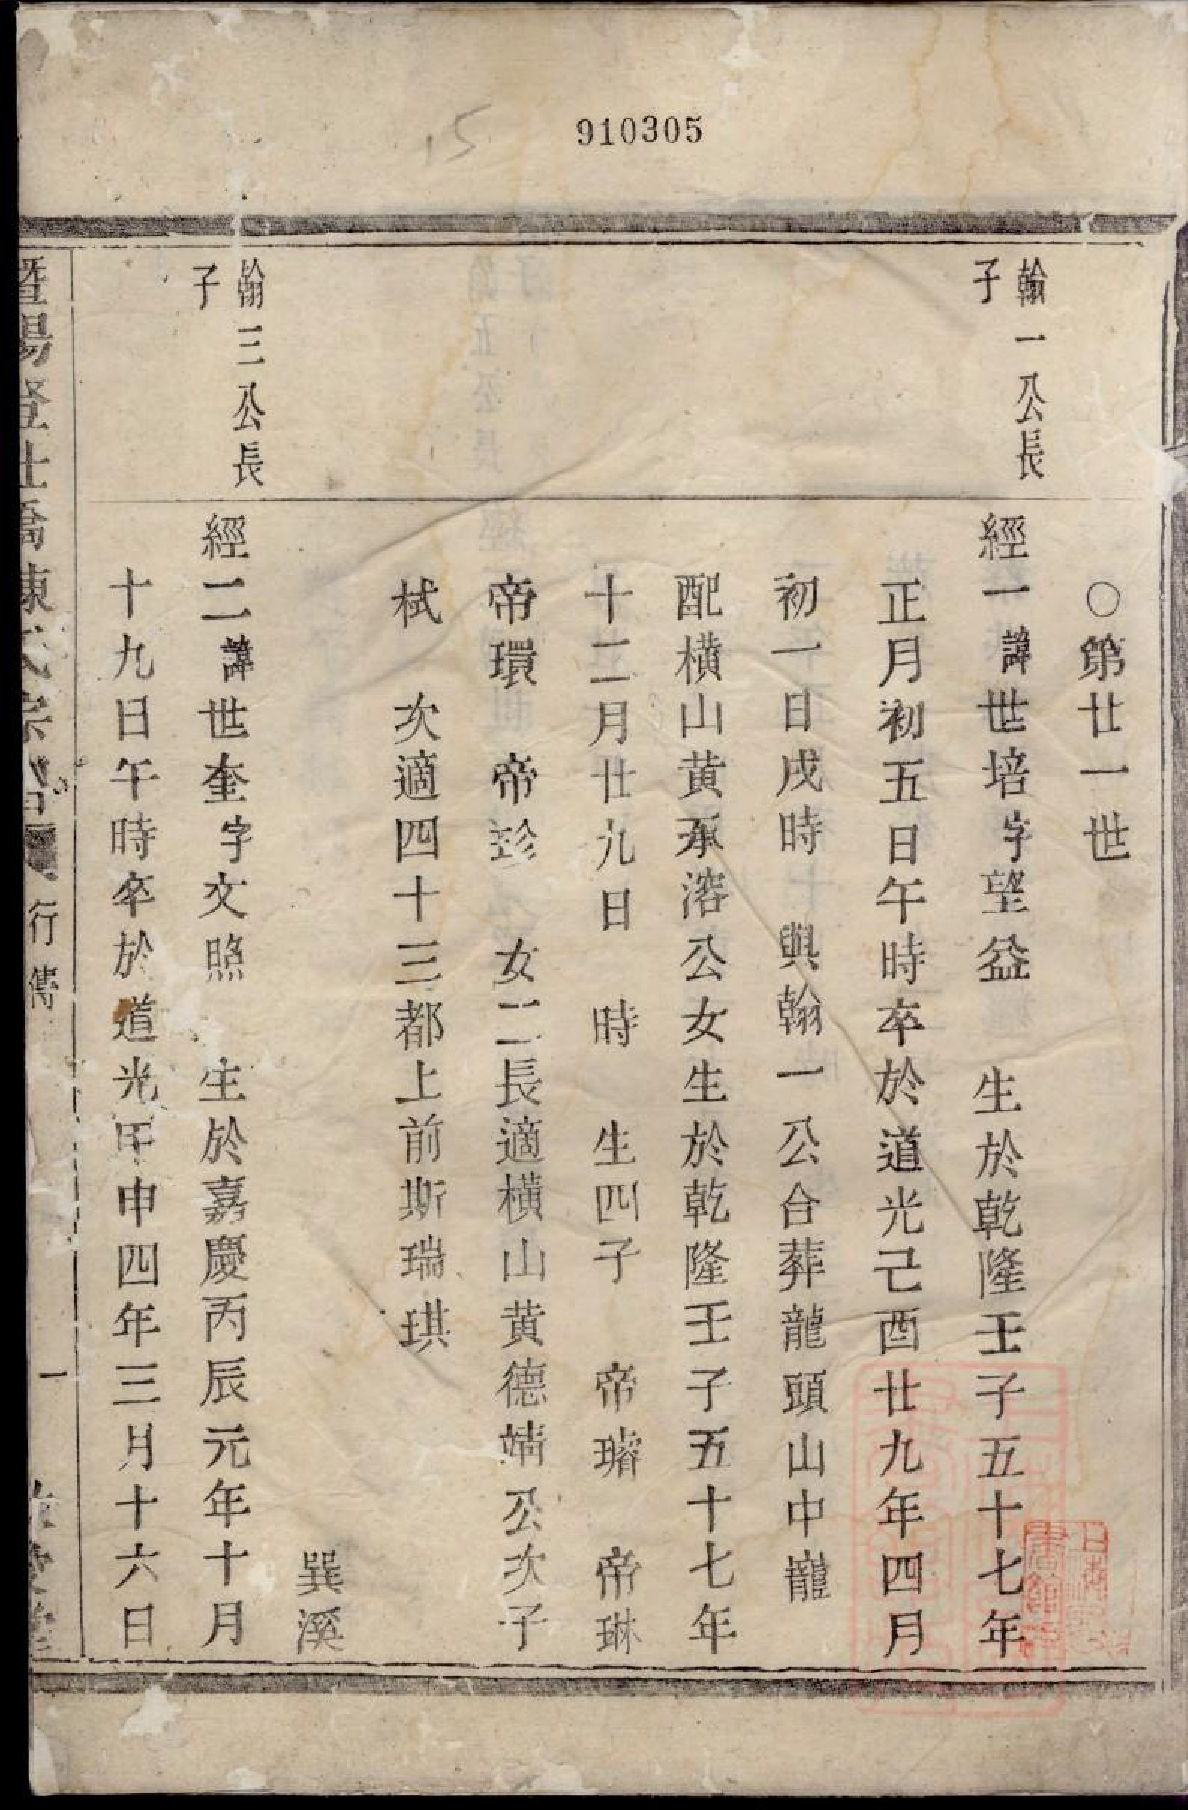 910305
○第廿一世
翰一公長
子
經一諱世培字望益　生於乾隆壬子五十七年
正月初五日午時卒於道光己酉廿九年四月
初一日戌時　與翰一公合葬龍頭山中巃
配橫山黄承溶公女生於乾隆壬子五十七年
十二月廿九日　時　生四子　帝璿　帝琳
帝環　帝㻱　女二長適橫山黄德端公次子
栻　次適四十三都上前斯瑞琪
巽溪
翰三公長
子
經二諱世奎字文照　生於嘉慶丙辰元年十月
十九日午時卒於道光甲申四年三月十六日
暨陽登仕橋陳氏宗譜
行傳
一